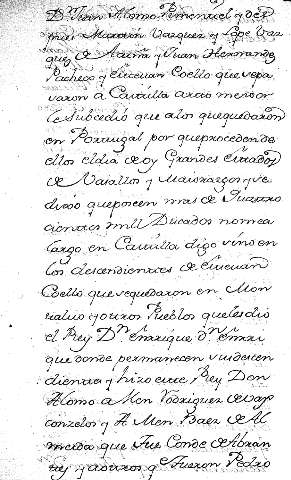 Dn Juan Alonso Pimentel y de s
Martin Vazquez y Lope Vaz
quez de Acuña y Juan Hernandez
Pacheco y Eiecuan Coello que se pa
saron a Castilla
le subcedio que a los que quedaron
en Portugal por que proceden de
ellos el dia de oy Grandes estados
de Vasallos y Maiorazgos que
poseen mas de quatro
cientos mill Ducados no me a
largo en Castilla digo vino en
los descendientes de Eiecuan
Coello que se quedaron en Mon
talvo y otros Pueblos que les dio
el Rey Dn Enrique
que donde permanecen su decen
dientia y hizo este Rey Don
Alonso a Men Rodriguez de Vas
conzelos y A Men Paez de Al
meida que fue Conde de Abran
tes y a otros q fueron Pedro